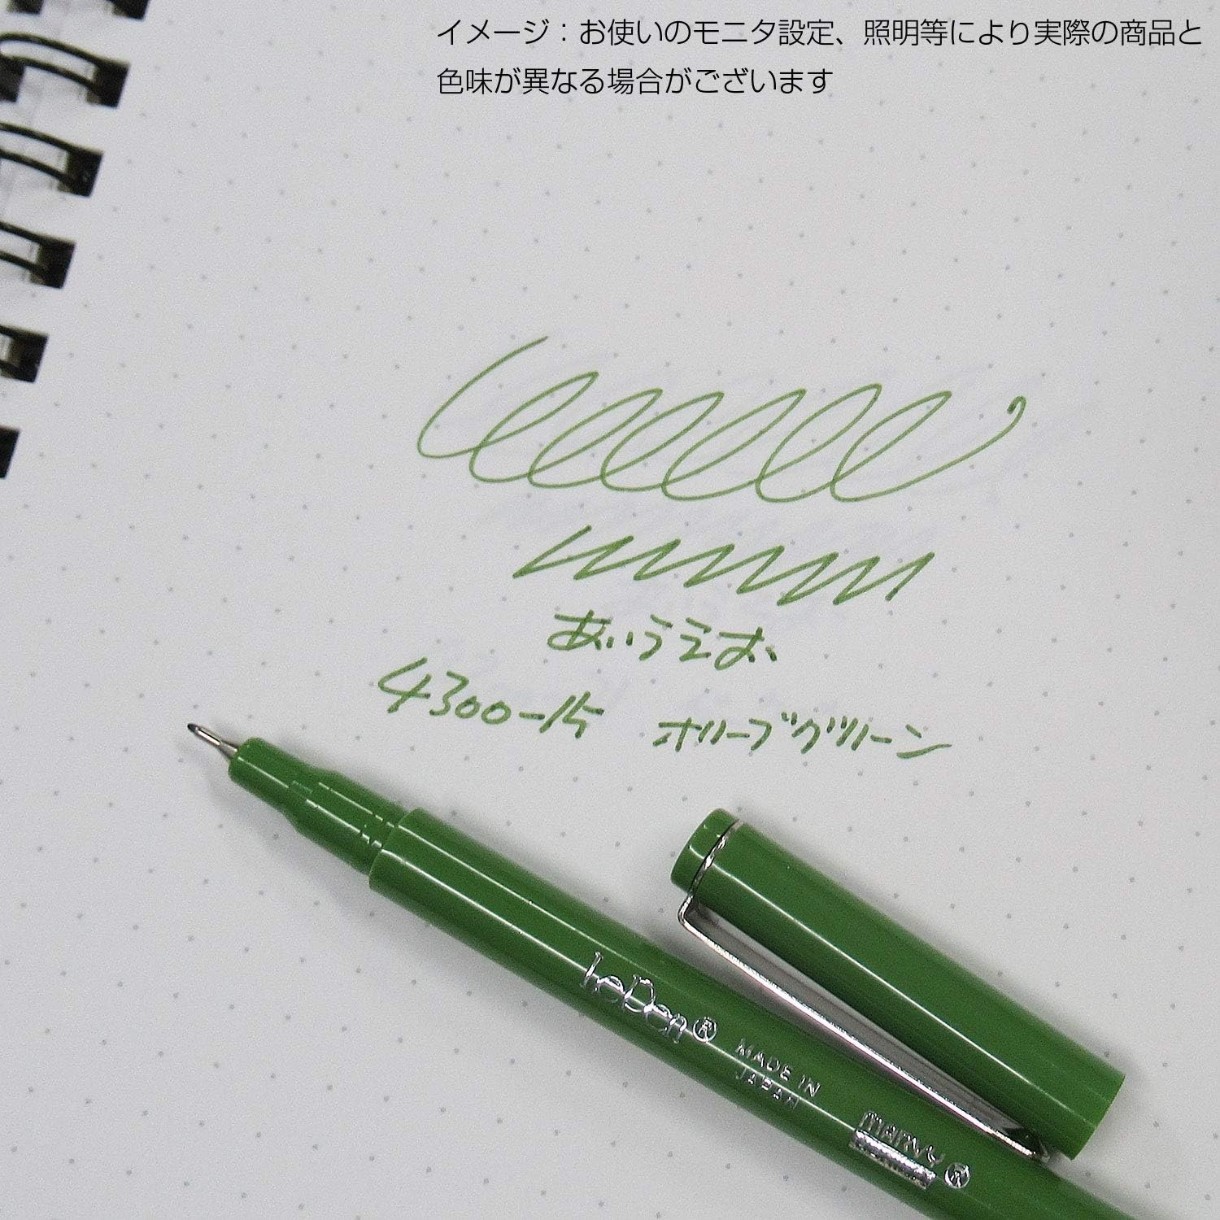 イメージ：お使いのモニタ設定、照明等により実際の商品と
色味が異なる場合がございます
あいうえお
4300-15 オリーブグリーン
LePen®
MADE IN
JAPAN
MARVY®